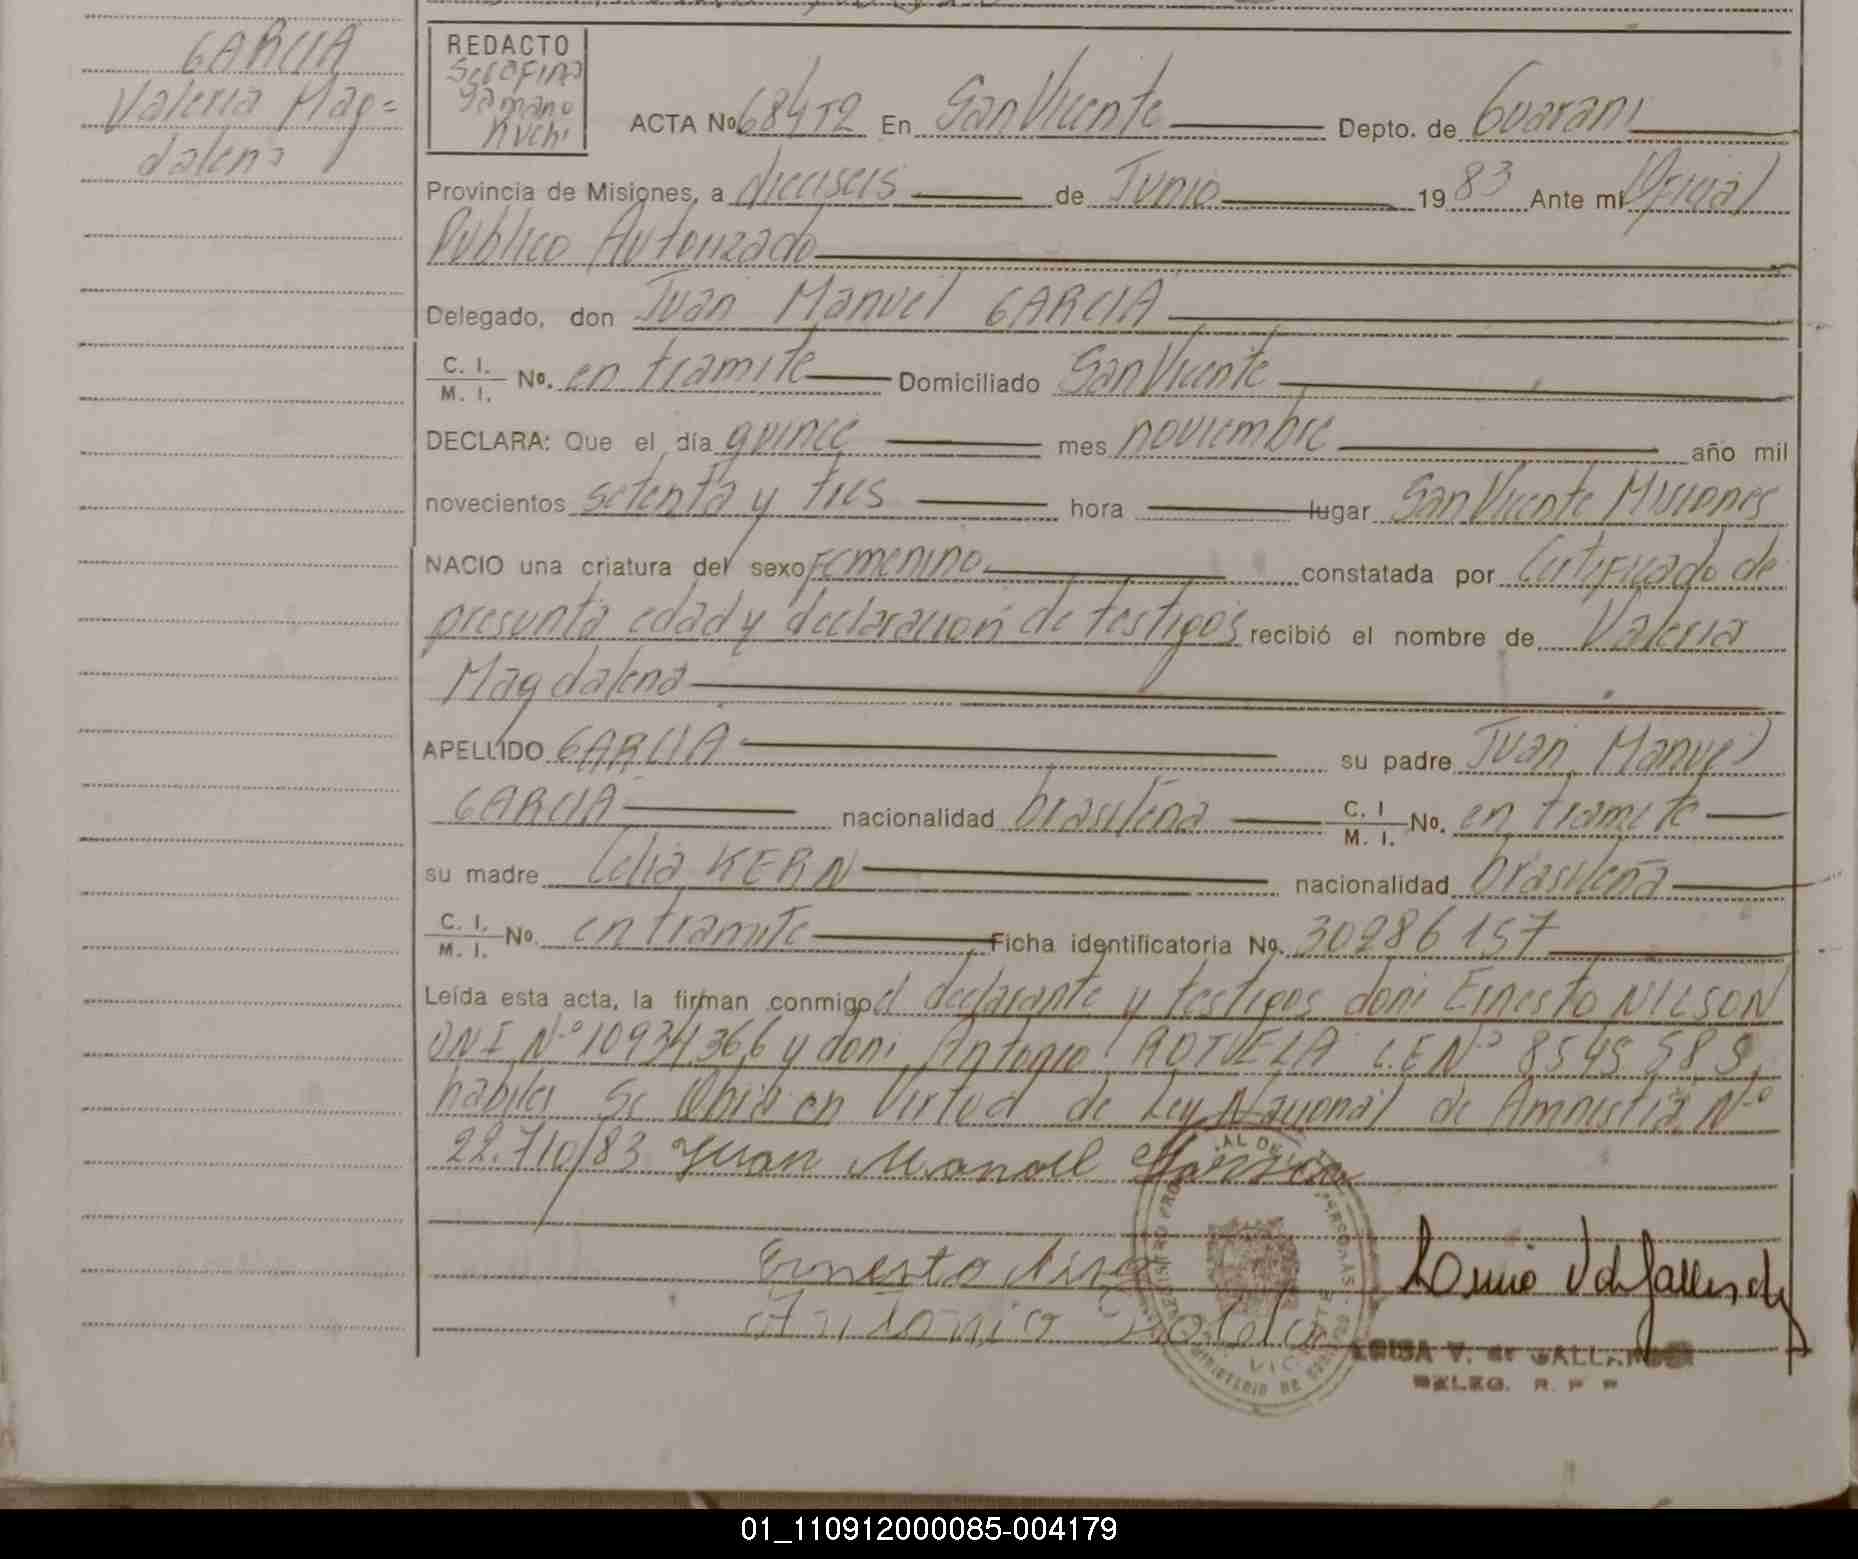 GARCIA
Valeria Mag=
dalena
REDACTO
Serafina
Samano
Kuchi
ACTA No 684T2 En San Vicente Depto. de Guarani
Provincia de Misiones, a dieciseis de Junio 19 83 Ante mí Oficial
Publico Autorizado
Delegado, don Juan Manuel GARCIA
C. I.
M. I. No. en tramite Domiciliado San Vicente
DECLARA: Que el día quince mes noviembre año mil
novecientos setenta y tres hora lugar San Vicente Misiones
NACIO una criatura del sexo Femenino constatada por Certificado de
presunta edad y declaracion de testigos recibió el nombre de Valeria
Magdalena
APELLIDO GARCIA su padre Juan Manuel
GARCIA nacionalidad brasileña C. I
M. I. No. en tramite
su madre Celia KERN nacionalidad brasileña
C. I.
M. I. No. en tramite Ficha identificatoria No. 30286157
Leída esta acta, la firman conmigo el declarante y testigos don: Ernesto NILSON
DNI Nº 10934366 y don: Antonio ROTELA L.E Nº 8545585,
habiles Se Labró en Virtud de Ley Nacional de Amnistia Nº
22.710/83 Juan Manoel Garcia
Ernesto
Antonio Rotela
LUISA V. de GALLARDO
DELEG. R. P. P.
01_110912000085-004179